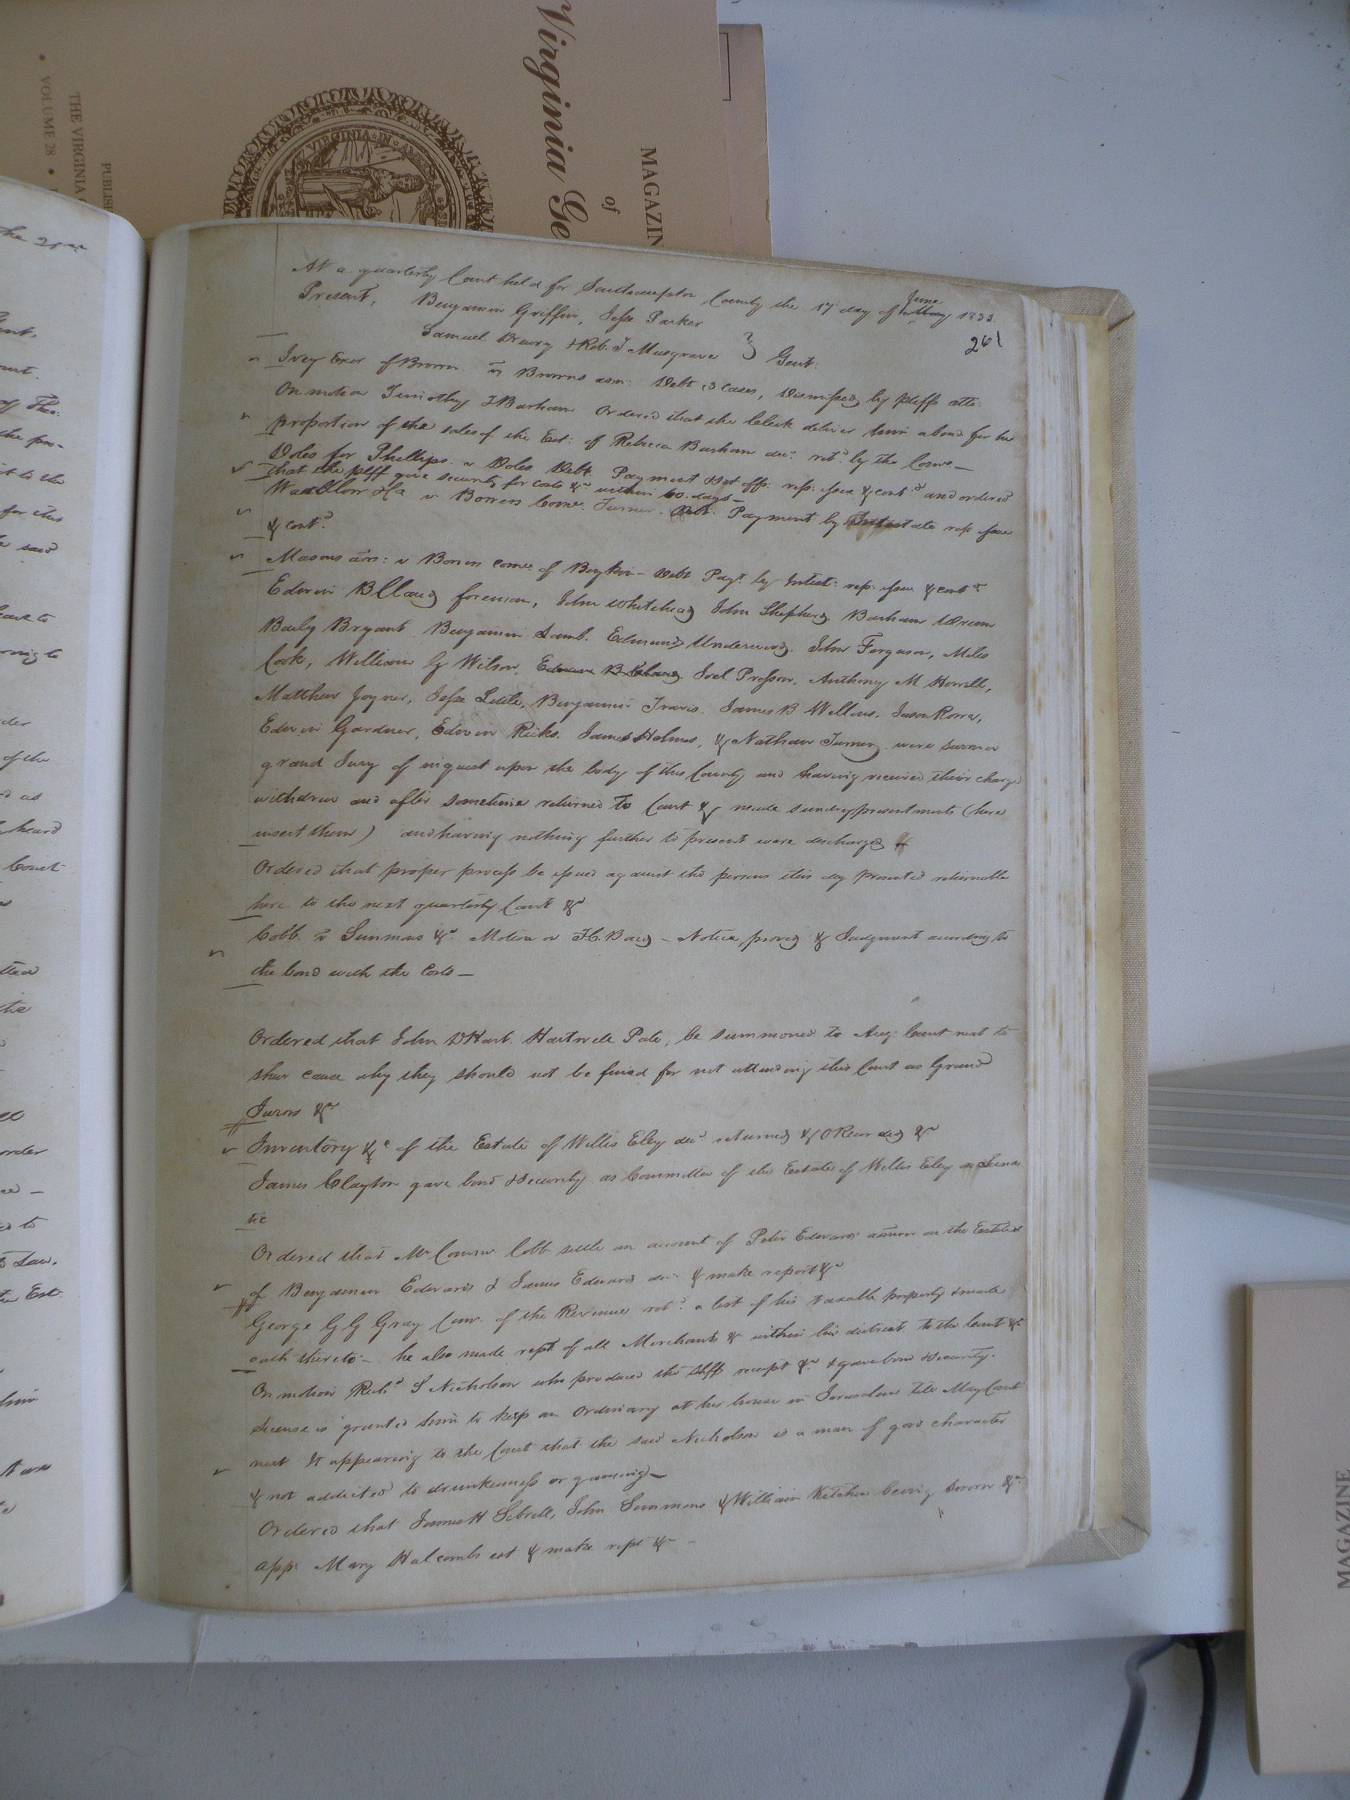 Virginia Ge
of
MAGAZIN
PUBLIS
THE VIRGINIA
VOLUME 28
At a quarterly Court held for Southampton County the 17 day of June May 1833
Present, Benjamin Griffin, Jesse Parker
Samuel Drewry & Rob. T Musgrave Gent.
261
Ivey Exor of Brown vs Browns adm: Debt 3 cases, dismissed by pltffs atto.
On motion Timothy T Barham Ordered that the Clerk deliver him a bond for his
proportion of the sales of the Est: of Rebecca Barham dec. retd by the Comr—
Doles for Phillips. v Doles Debt. Payment & set offs. rep: issue & contd and ordered
that the pltff give security for costs &c within 60. days—
v Bowers Come. Turner. Debt. Payment by Intestate rep issue
& contd
Masons admr: v Bowers come of Boykin— Debt Payt by Intest: rep: issue & contd
Edwin B Claud foreman, John Whitehead John Shepherd Barham
Baily Bryant Benjamin Lamb. Edmund Underwood. John Ferguson, Miles
Cook, William G Wilson, Edwin B Claud Joel Prossor. Anthony M Howell,
Matthew Joyner, Jesse Little, Benjamin Travis. James B Willms. Jason Rowe,
Edwin Gardner, Edwin Ricks. James Holmes, & Nathan Turner were sworn
grand Jury of inquest upon the body of this County and having received their charge
withdrew and after sometime returned to Court & made sundry presentments (here
insert them) and having nothing further to present were discharged
Ordered that proper process be issued against the persons this day presented returnable
here to the next quarterly Court &c
Cobb v Simmons &c Motion on F. Bond — Notice proved & Judgment according to
the bond with the Costs—
Ordered that John D Hart. Hartwell Pate, be summoned to Aug: Court next to
shew cause why they should not be fined for not attending this Court as Grand
Jurors &c
Inventory &c of the Estate of Willis Eley decd returned & ORecorded &c
James Clayton gave bond & security as Committee of the Estate of Willis Eley a Luna
tic
Ordered that Mr Commr Cobb settle an account of Peter Edwards admon on the Estates
of Benjamin Edwards & James Edwards dec & make report &c
George G G Gray Comr. of the Revenue retd a list of his taxable property & made
oath thereto— he also made rept of all Merchants &c within his district to the Court &c
On motion Robt S Nicholson who produced the shff receipt &c & gave bond & security.
license is granted him to keep an Ordinary at his house in Jerusalem till May Court
next It appearing to the Court that the said Nicholson is a man of good character
& not addicted to drunkenness or gaming—
Ordered that James H Sebrell, John Simmons & William Kitchen being sworn &c
app: Mary Halcombs est & make rept &c —
MAGAZINE